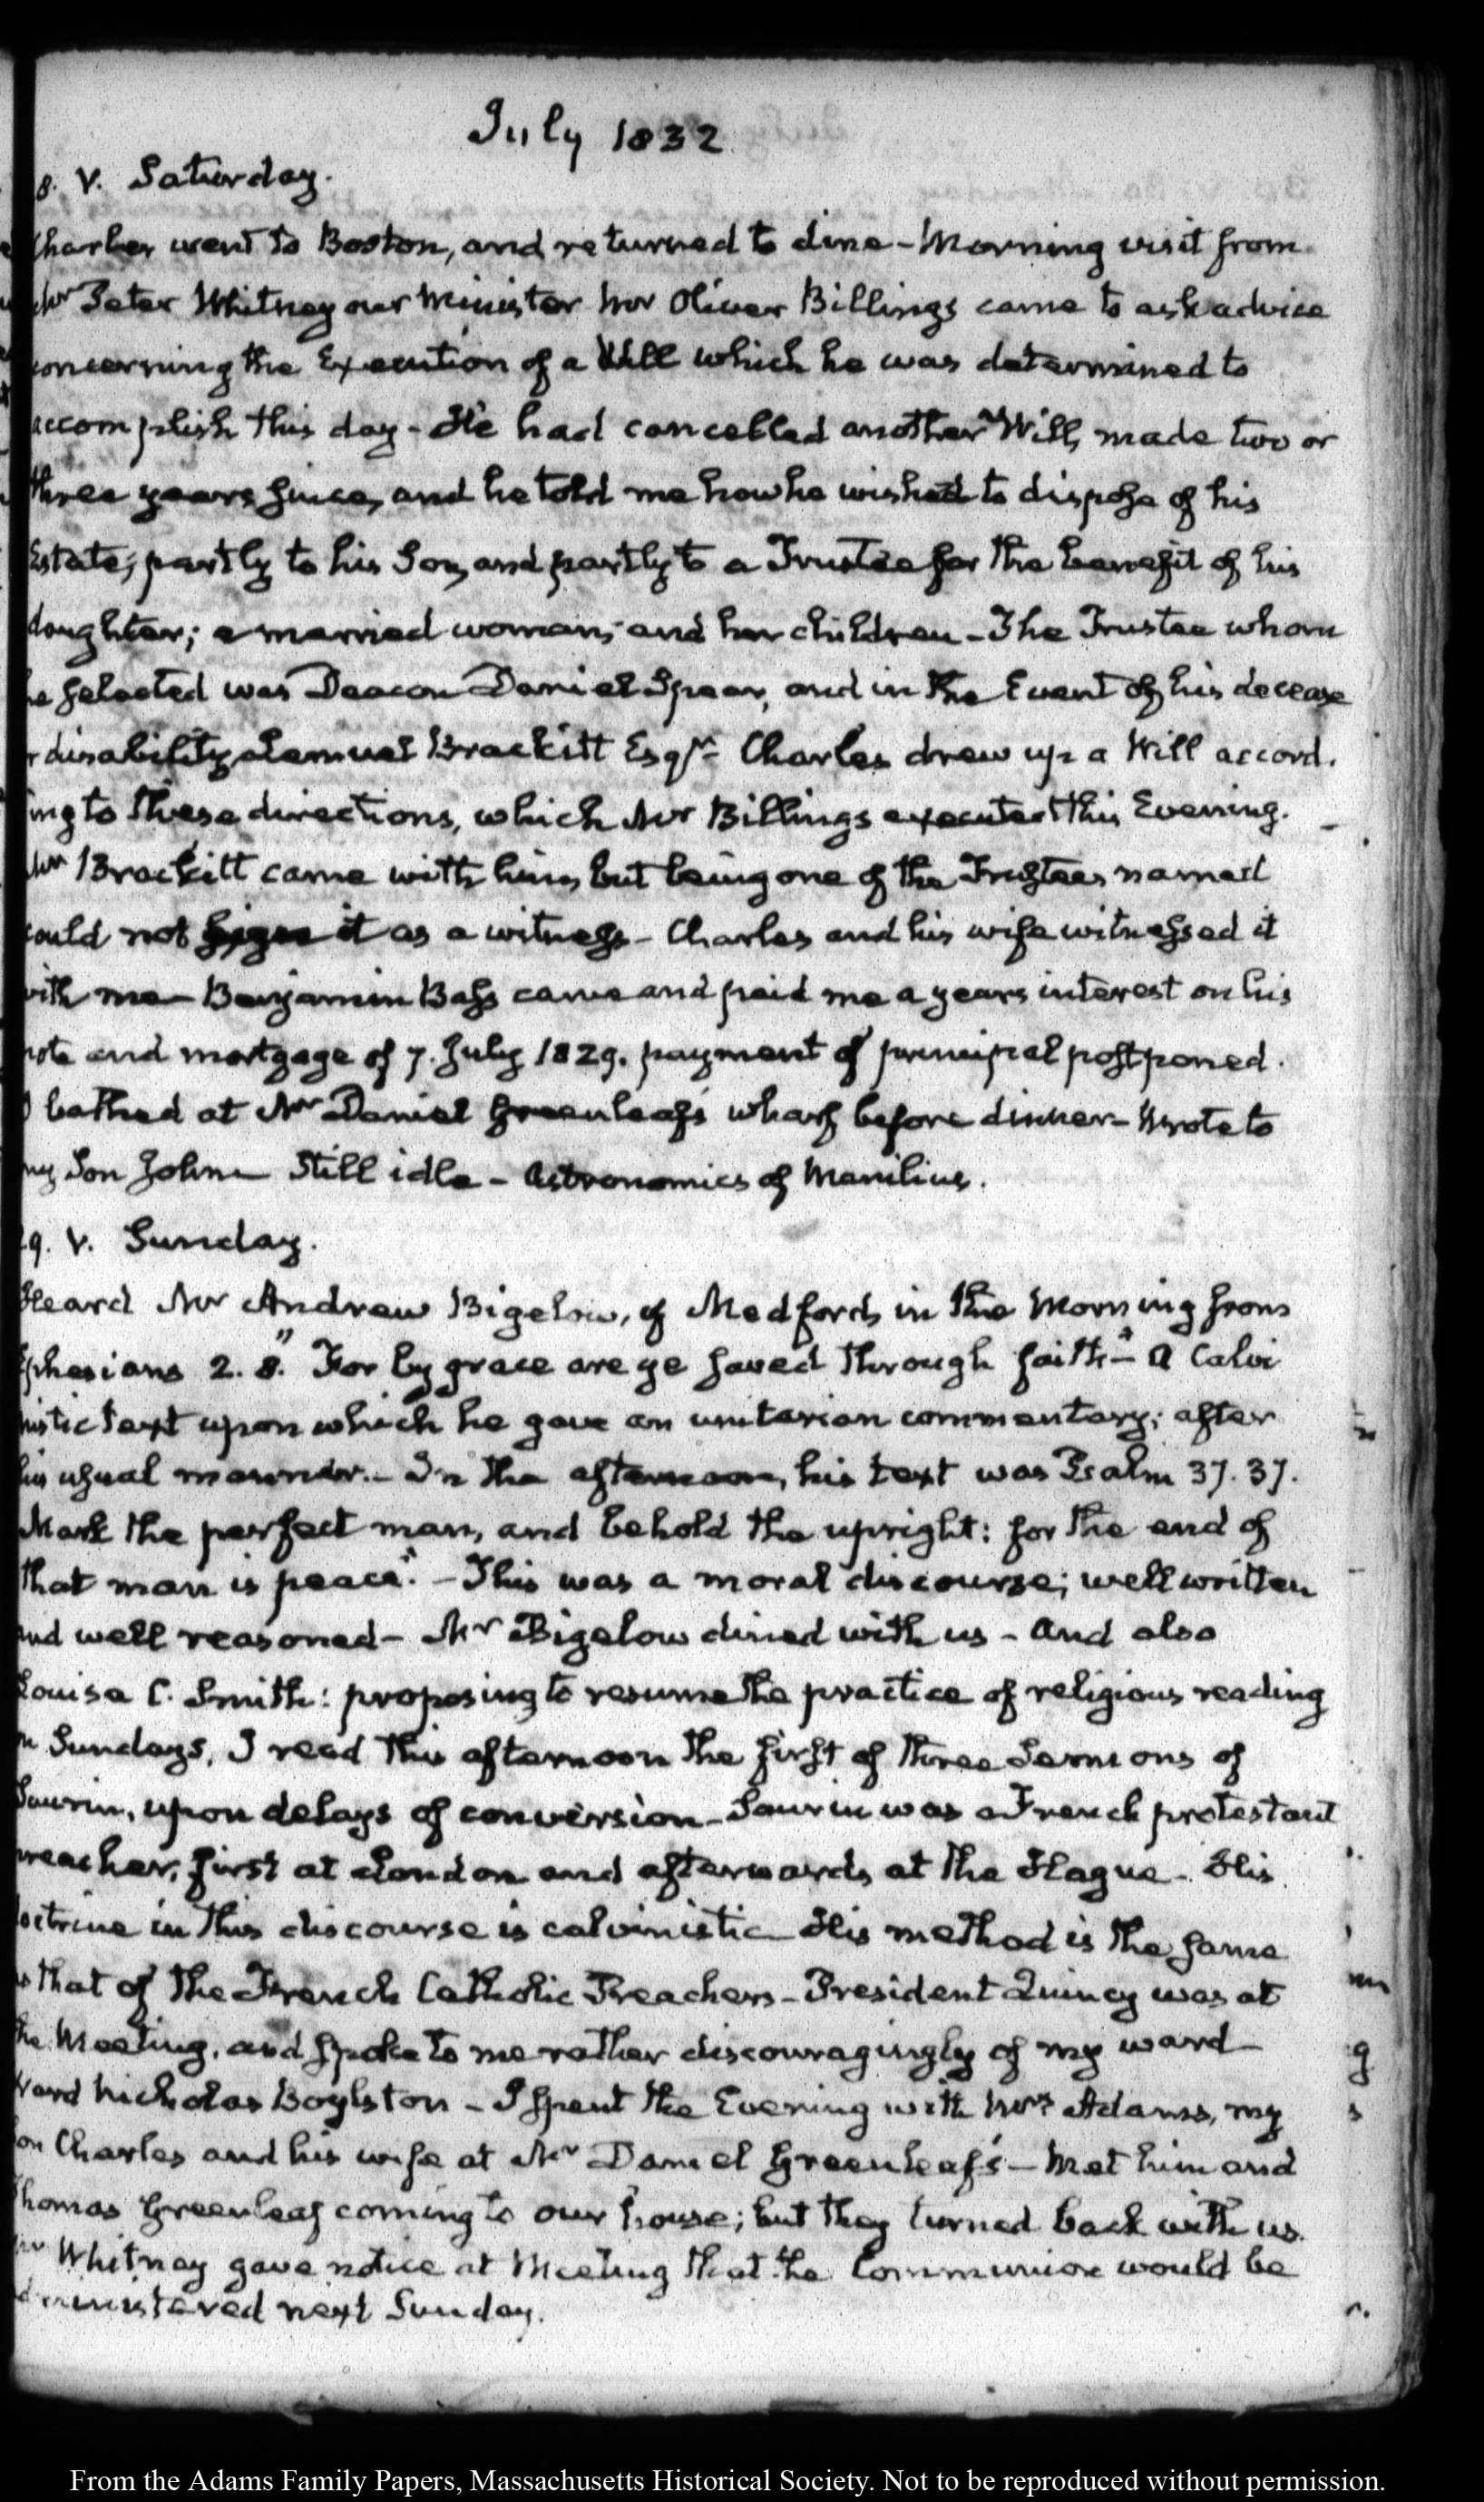 July 1832
8. V. Saturday.
Charles went to Boston, and returned to dine – Morning visit from
Mr Peter Whitney our Minister Mr Oliver Billings came to ask advice
concerning the Execution of a Will which he was determined to
accomplish this day – He had cancelled another Will, made two or
three years since, and he told me how he wished to dispose of his
Estate; partly to his Son, and partly to a Trustee for the benefit of his
daughter; a married woman; and her children – The Trustee whom
he selected was Deacon Daniel Spear, and in the Event of his decease
r disability Lemuel Brackitt Esqr – Charles drew up a Will accord.
ing to these directions, which Mr Billings executed this Evening.
Mr Brackitt came with him, but being one of the Trustees named
could not sign it as a witness – Charles and his wife witnessed it
with me – Benjamin Bass came and paid me a years interest on his
note and mortgage of 7. July 1829. payment of principal postponed.
I bathed at Mr Daniel Greenleaf's wharf before dinner – Wrote to
my Son John – Still idle – Astronomics of Manilius.
29. V. Sunday.
Heard Mr Andrew Bigelow, of Medford, in the Morning from
Ephesians 2. 8. "For by grace are ye saved through faith" – A Calvi
nistic text upon which he gave an unitarian commentary; after
his usual manner. – In the afternoon, his text was Psalm 37. 37.
Mark the perfect man, and behold the upright: for the end of
that man is peace." – This was a moral discourse; well written
and well reasoned – Mr Bigelow dined with us – And also
Louisa C. Smith: proposing to resume the practice of religious reading
on Sundays, I read this afternoon the first of three Sermons of
Saurin, upon delays of conversion – Saurin was a French protestant
preacher, first at London and afterwards at the Hague – His
doctrine in this discourse is calvinistic – His method is the same
as that of the French Catholic Preachers – President Quincy was at
the Meeting, and spoke to me rather discouragingly of my ward –
Ward Nicholas Boylston – I spent the Evening with Mrs Adams, my
Son Charles and his wife at Mr Daniel Greenleaf's – Met him and
Thomas Greenleaf coming to our house; but they turned back with us.
Mr Whitney gave notice at Meeting that the Communion would be
administered next Sunday.
From the Adams Family Papers, Massachusetts Historical Society. Not to be reproduced without permission.